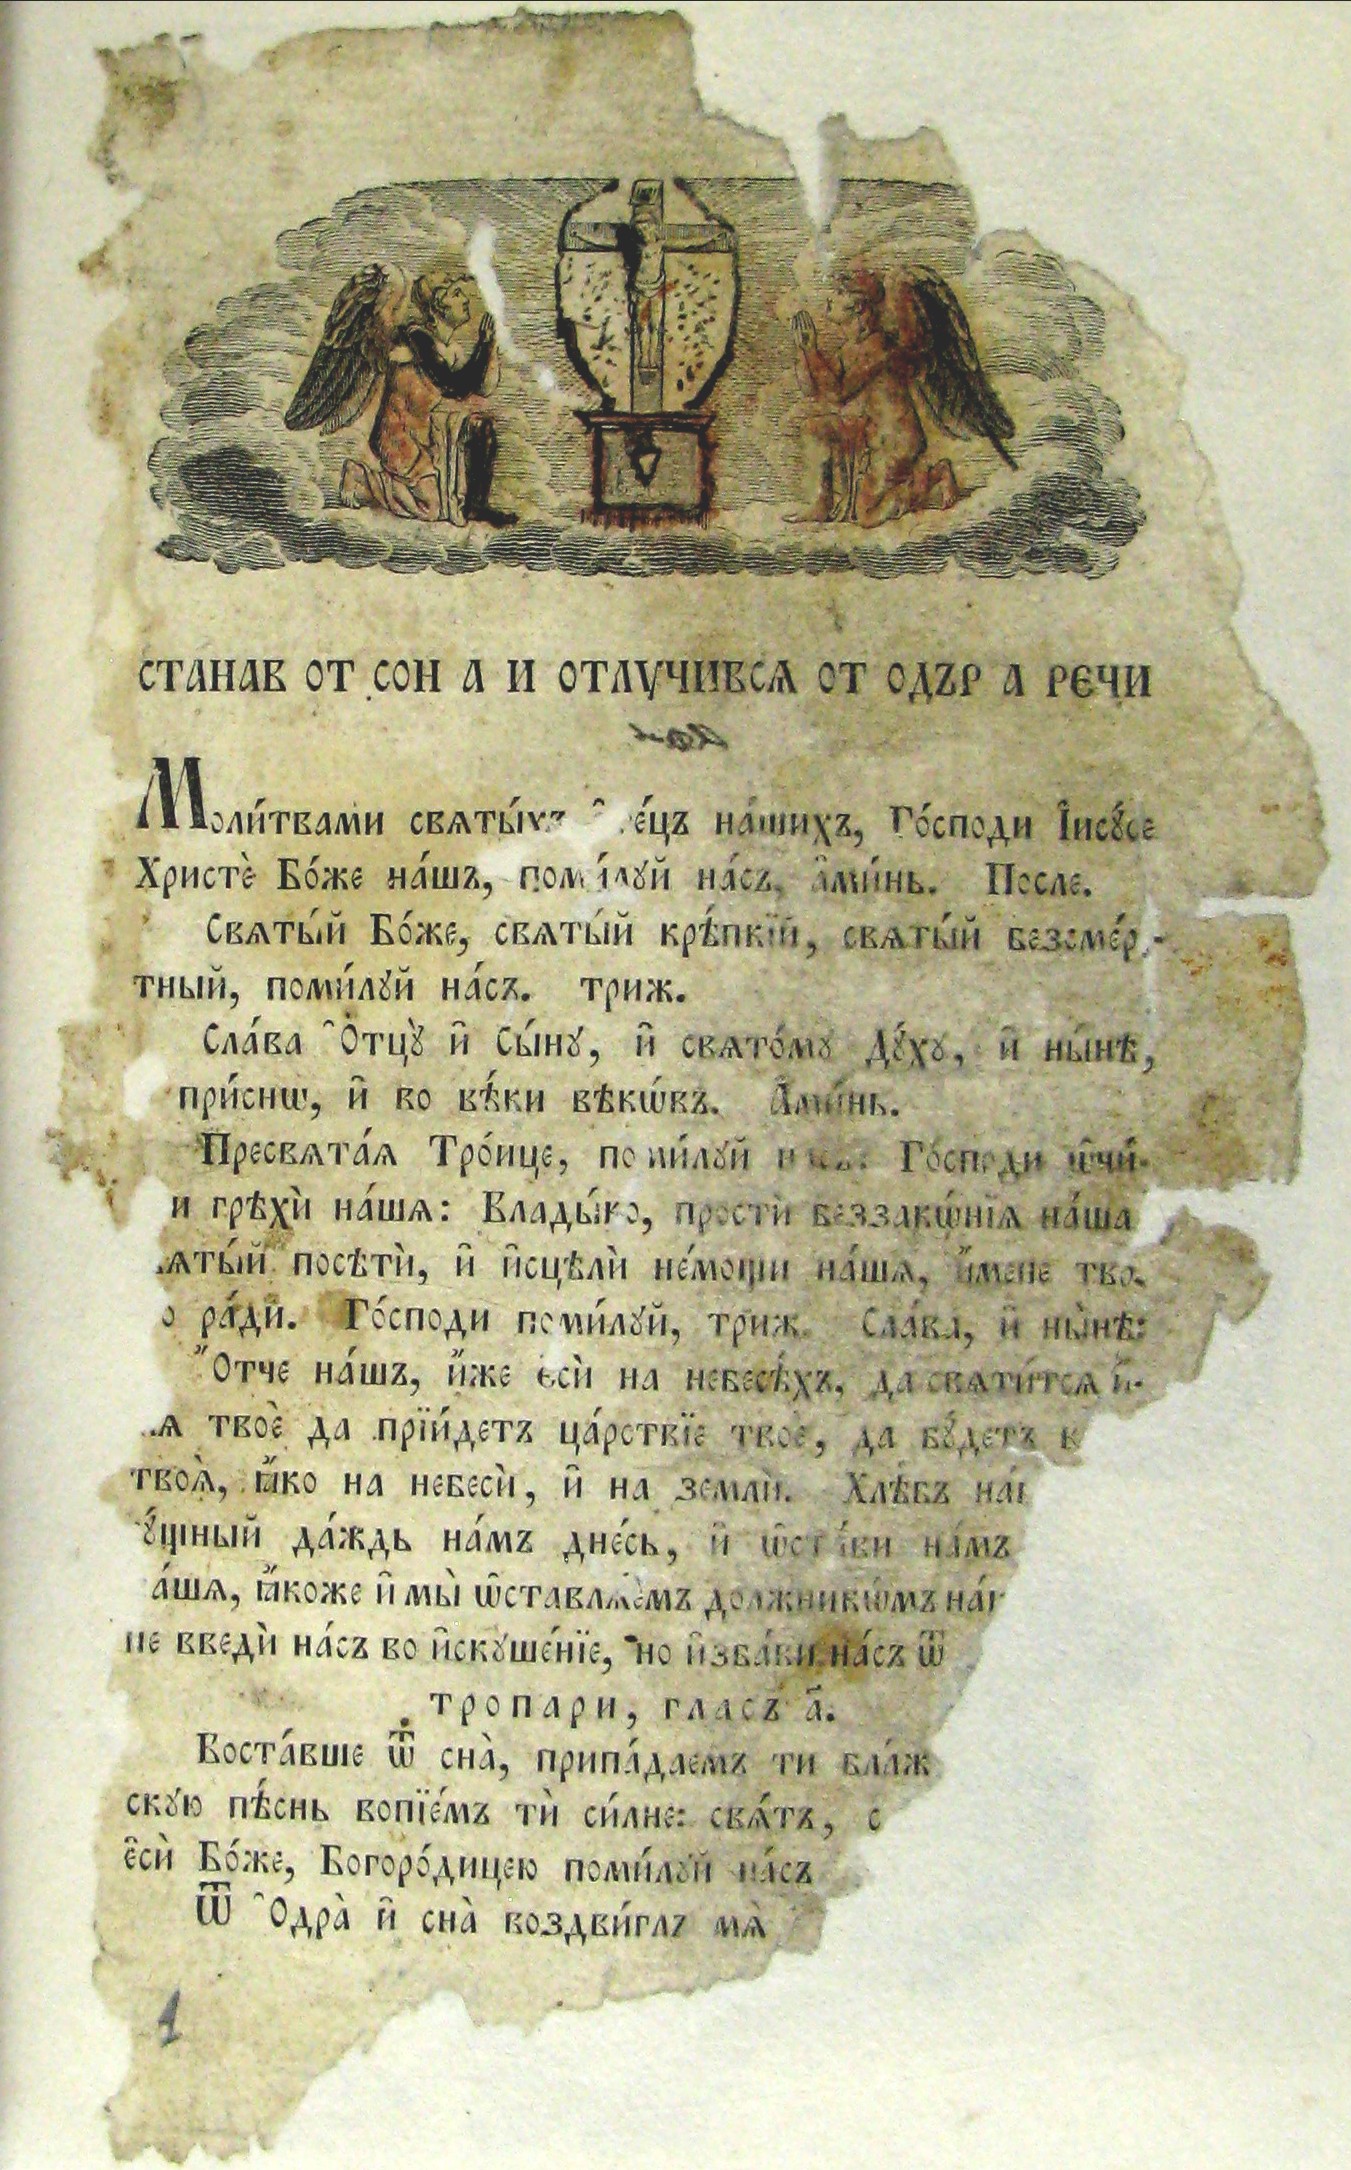 СТАНАВ ОТ СОН А И ОТЛꙋЧИВСѦ ОТ ОДЪР А РЕЧИ
Моли́твами свѧты́хъ на́шихъ, Го́споди І҆исꙋ́се
Христѐ Бо́же на́шъ, поми́лꙋй на́съ, а҆ми́нь. После.
Свѧты́й Бо́же, свѧты́й крѣ́пкїй, свѧты́й безсме́р-
тный, поми́лꙋй на́съ. триж.
Сла́ва Ѻ҆тцꙋ̀ и҆ Сы́нꙋ, и҆ свѧто́мꙋ Дꙋ́хꙋ, и҆ ны́нѣ,
при́снѡ, и҆ во вѣ́ки вѣкѡ́въ. А҆ми́нь.
Пресвѧта́ѧ Тро́ице, поми́лꙋй на́съ: Го́споди ѡ҆чи́-
и грѣхѝ на́шѧ: Влады́ко, простѝ беззакѡ́нїѧ на́ша
ѧты́й посѣтѝ, и҆ и҆сцѣлѝ не́мощи на́шѧ, и҆́мене тво
о ра́ди. Го́споди поми́лꙋй, триж. Сла́ва, и҆ ны̀нѣ:
Ѻ҆́тче на́шъ, и҆́же є҆сѝ на небесѣ́хъ, да свѧти́тсѧ и҆́-
ѧ твоѐ да прїи́детъ ца́рствїе твоѐ, да бꙋ́детъ в
твоѧ̀, ꙗ҆́ко на небесѝ, и҆ на землѝ. Хлѣ́бъ на́
ꙋ́щный да́ждь на́мъ дне́сь, и҆ ѡ҆ста́ви на́мъ
а́шѧ, ꙗ҆́коже и҆ мы̀ ѡ҆ставлѧ́емъ должникѡ́мъ на́
не введѝ на́съ во и҆скꙋше́нїе, но и҆зба́ви на́съ ѿ
тропари, гласъ а҃.
Воста́вше ѿ сна̀, припа́даемъ ти бла́ж
скꙋю пѣ́снь вопїе́мъ тѝ си́лне: свѧ́тъ, с
є҆сѝ Бо́же, Богоро́дицею поми́лꙋй на́съ
Ѿ Ѻ҆дра̀ и҆ сна̀ воздви́глъ мѧ̀
1